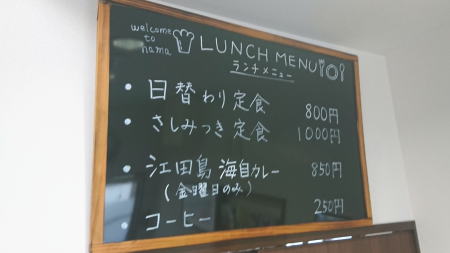 welcome
to
hama
LUNCH MENU
ランチメニュー
・日替わり定食 800円
・さしみつき定食 1000円
・江田島 海自カレー 850円
(金曜日のみ)
・コーヒー 250円